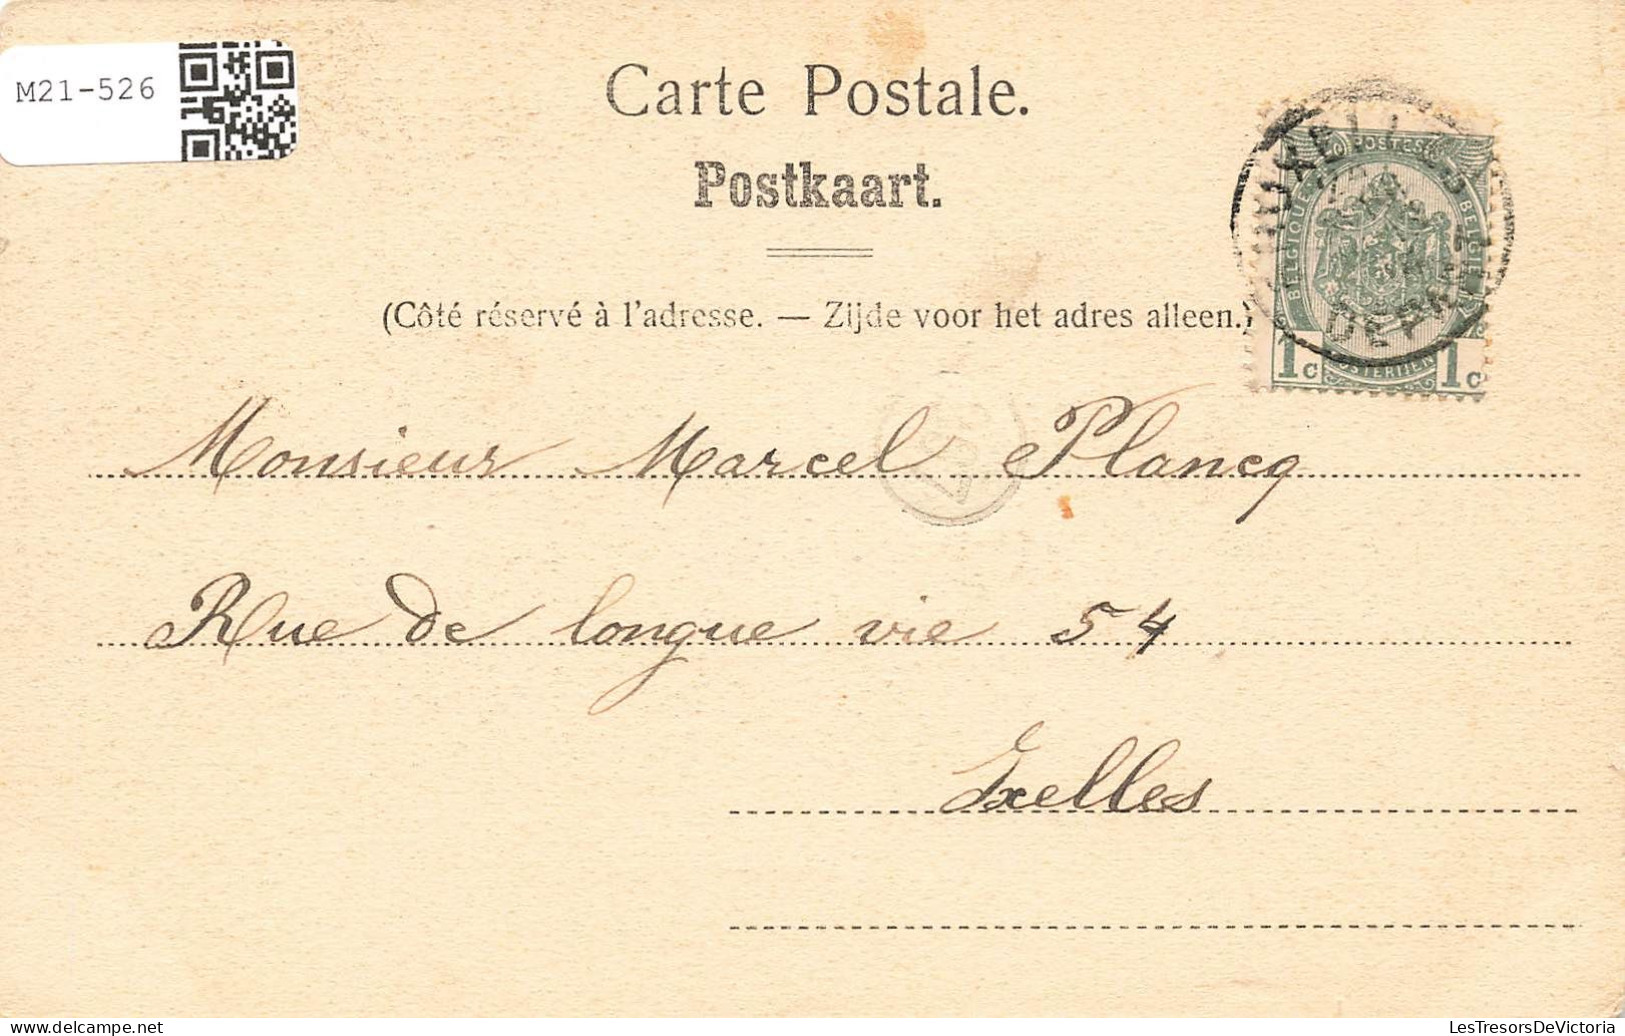 M21-526
Carte Postale.
Postkaart.
(Côté réservé à l'adresse. — Zijde voor het adres alleen.)
POSTES
BELGIQUE
BELGIË
1c 1c
DEPART
Monsieur Marcel Plancq
Rue de longue vie 54
Ixelles
www.delcampe.net
LesTresorsDeVictoria